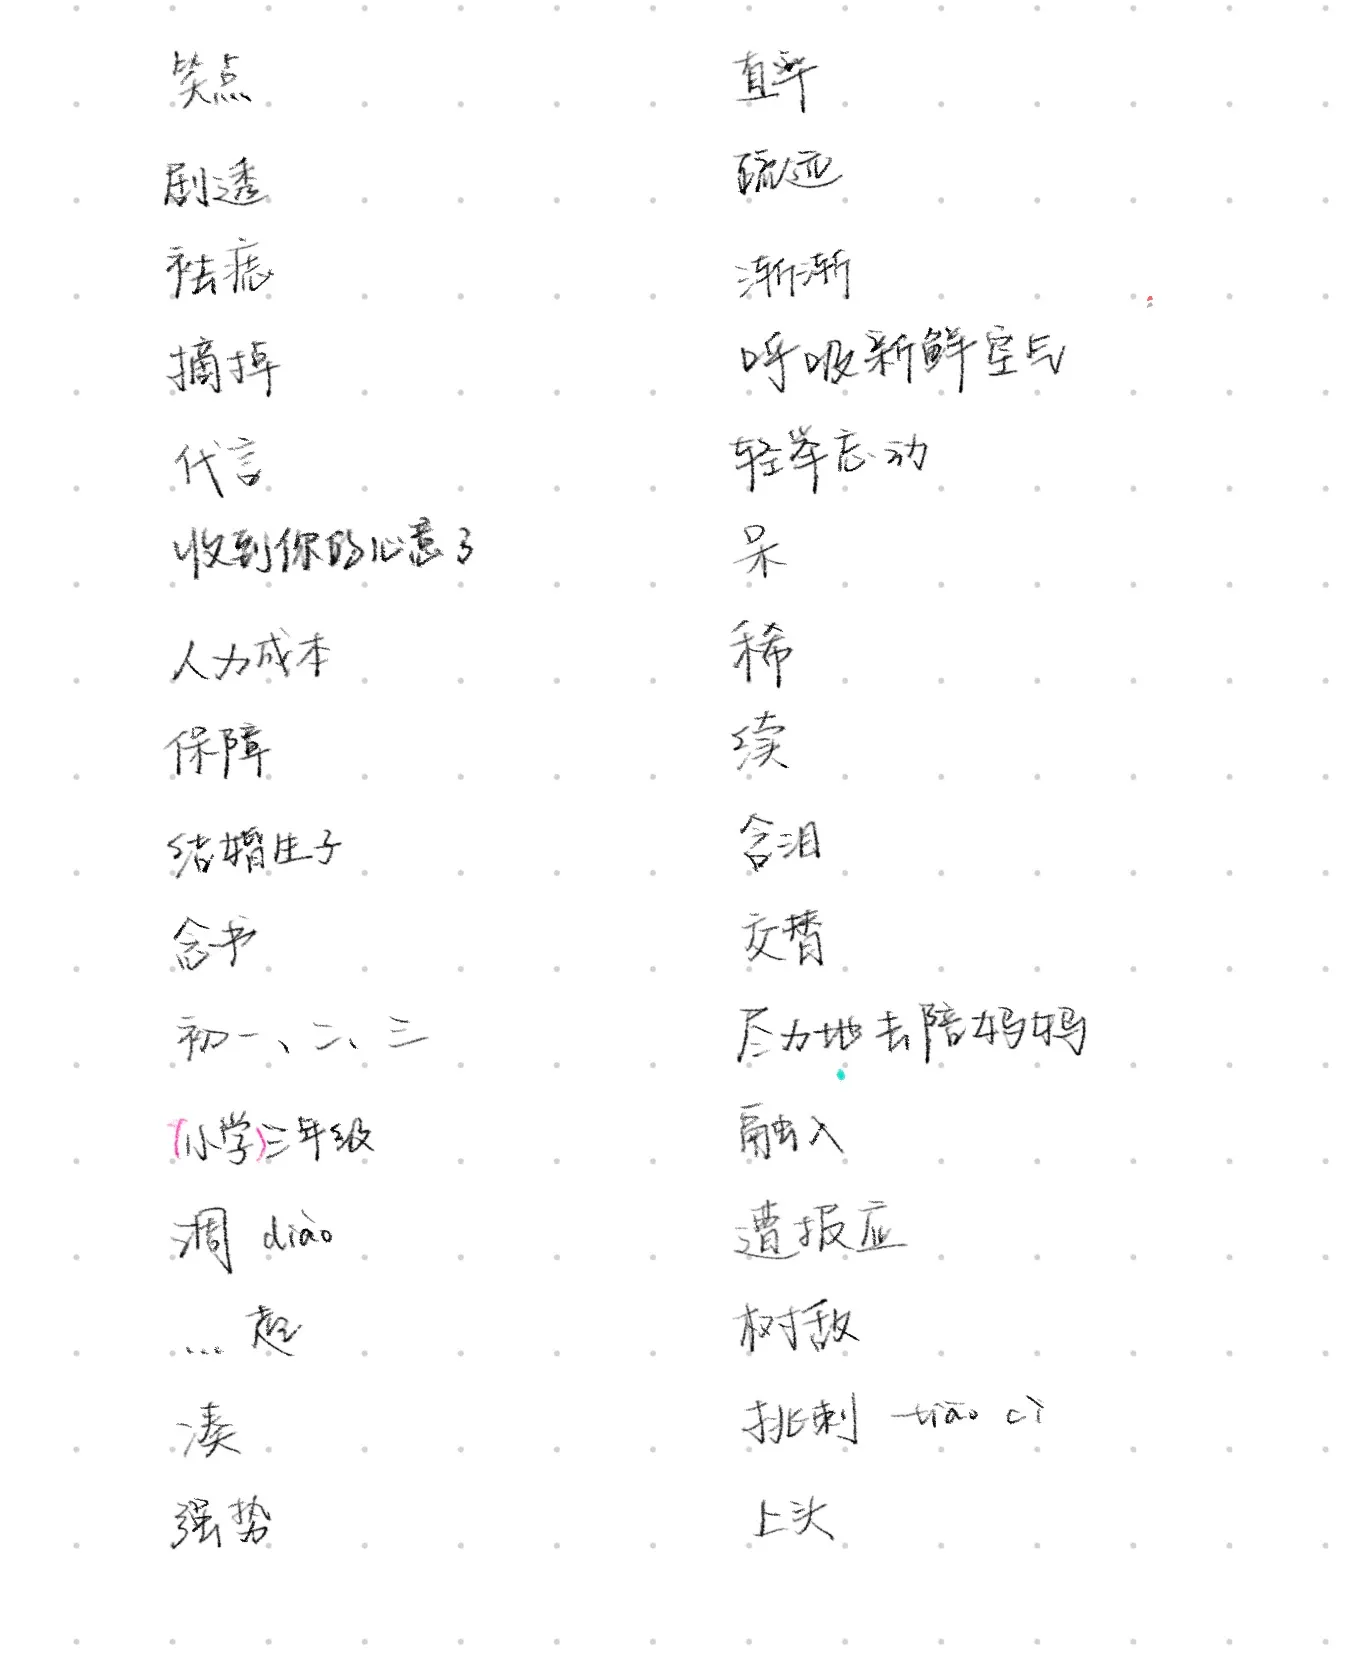 笑点
剧透
祛痣
摘掉
代言
收到你的心意了
人力成本
保障
结婚生子
念书
初一、二、三
(小学)三年级
凋 diào
...
凑
强势
直率
疏远
渐渐
呼吸新鲜空气
轻举忘动
呆
稀
续
含泪
交替
尽力地去陪妈妈
融入
遭报应
树敌
挑刺 tiāo cì
上头